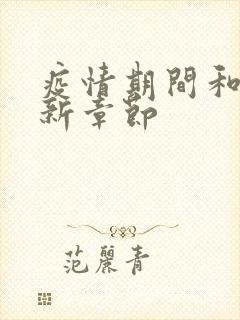 疫情期間和
新章節
范麗青